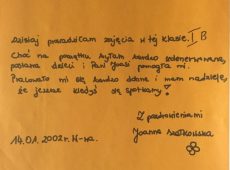 Dzisiaj prowadziłam zajęcia w tej klasie. I B
Choć na początku byłam bardzo zdenerwowana,
postawa dzieci i Pani Joasi pomogła mi.
Pracowało mi się bardzo dobrze i mam nadzieję,
że jeszcze kiedyś się spotkamy!
Z pozdrowieniami
Joanna
14.01.2002r. W-wa.